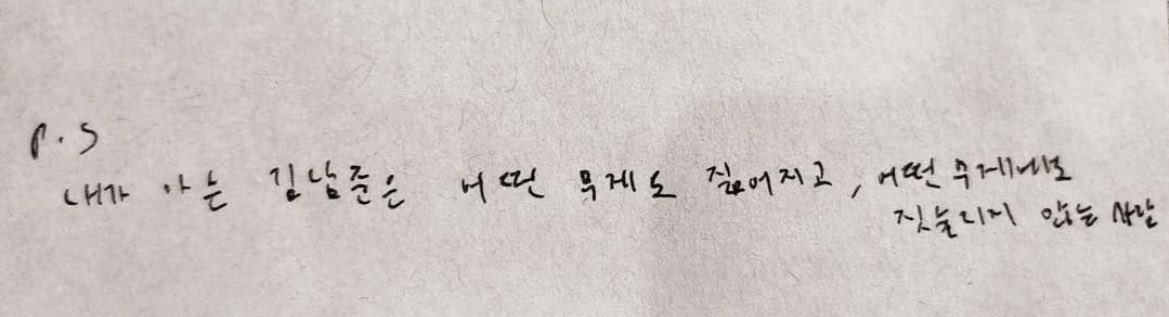 P.S
내가 아는 김남준은 어떤 무게도 짊어지고, 어떤 무게에도
짓눌리지 않는 사람